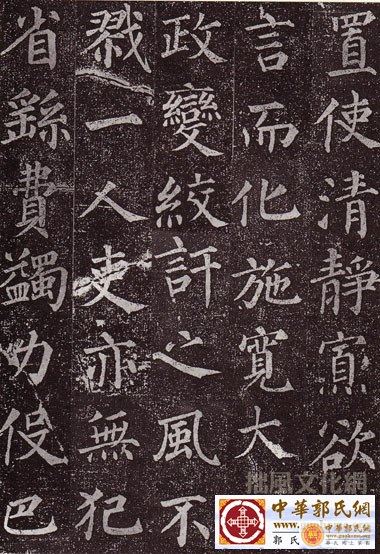 置使清靜寡欲
言而化施寬大
政變絞訐之風不
戮一人吏亦無犯
省繇費蠲力伇巴
拙風文化網
中華郭氏網
www.
郭氏